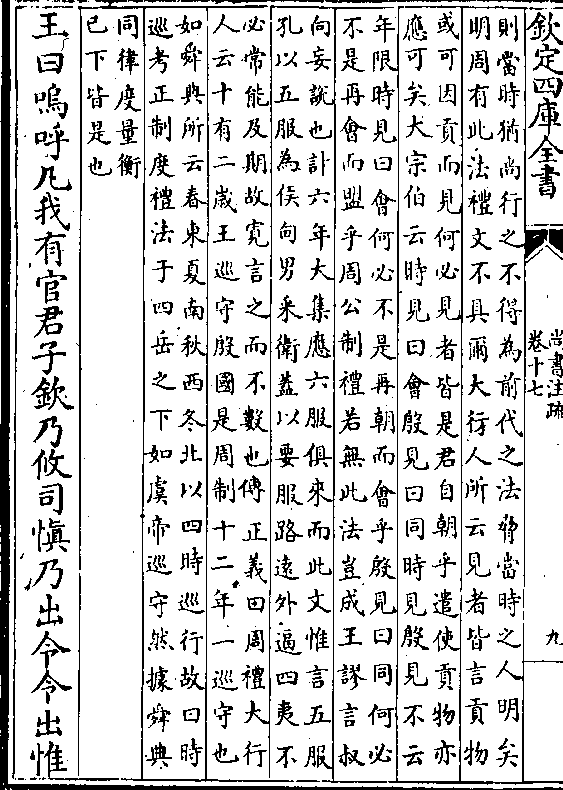 欽定四庫全書
尚書注疏
卷十七
九
則當時猶尚行之不得為前代之法脅當時之人明矣
明周有此法禮文不具爾大行人所云見者皆言貢物
或可因貢而見何必見者皆是君自朝乎遣使貢物亦
應可矣大宗伯云時見曰會殷見曰同時見殷見不云
年限時見曰會何必不是再朝而會乎殷見曰同何必
不是再會而盟乎周公制禮若無此法豈成王謬言叔
向妄說也計六年大集應六服俱來而此文惟言五服
孔以五服為侯甸男采衛蓋以要服路遠外逼四夷不
必常能及期故寬言之而不數也傳正義曰周禮大行
人云十有二歲王巡守殷國是周制十二年一巡守也
如舜典所云春東夏南秋西冬北以四時巡行故曰時
巡考正制度禮法于四岳之下如虞帝巡守然據舜典
同律度量衡
已下皆是也
王曰嗚呼凡我有官君子欽乃攸司慎乃出令令出惟